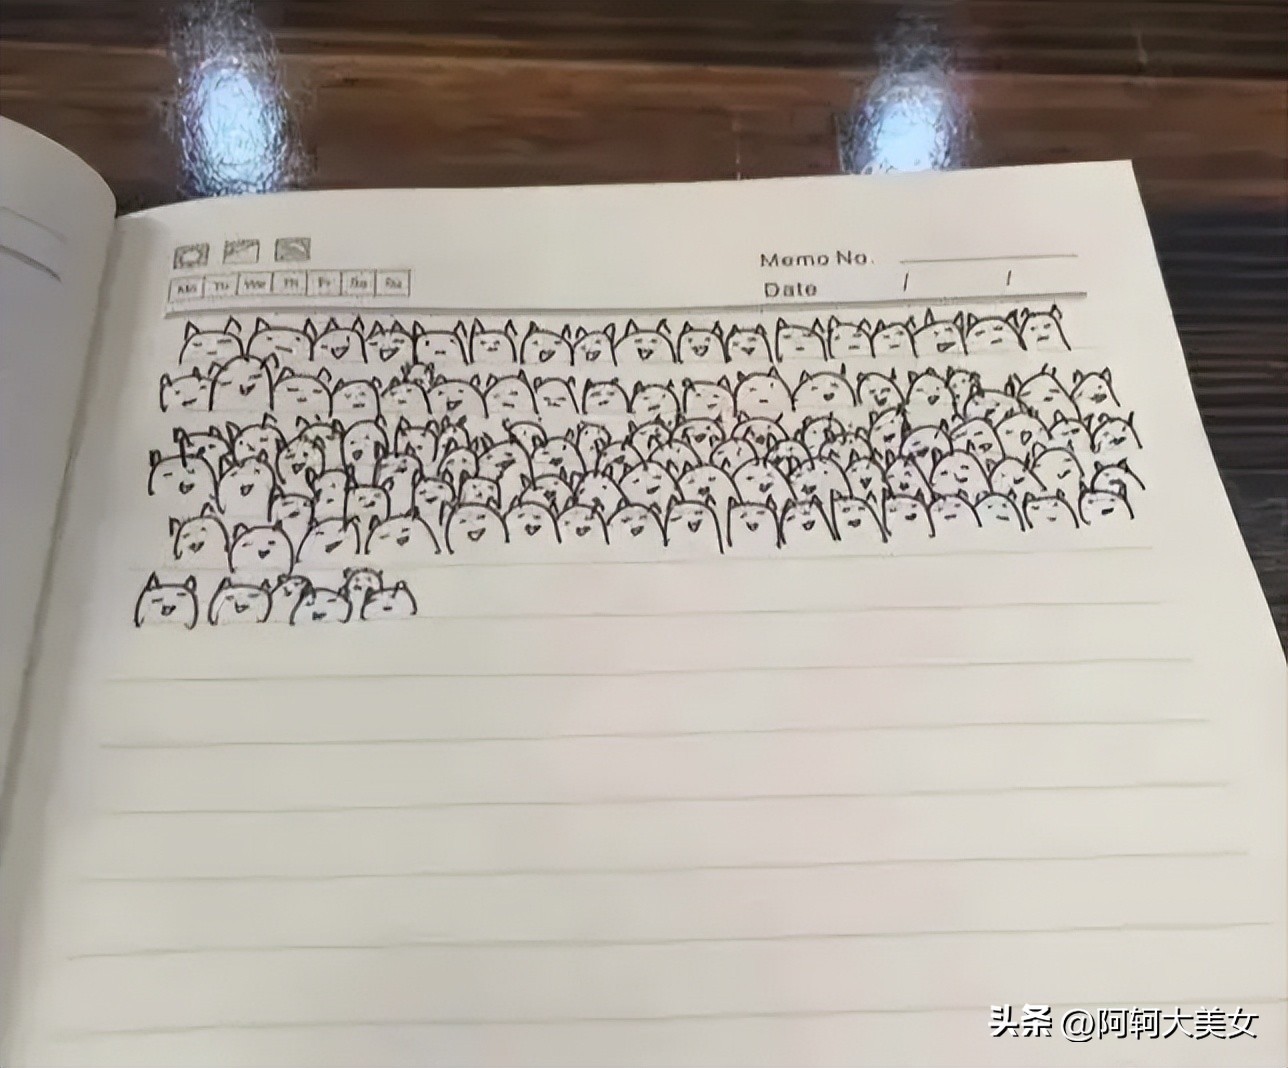 Memo No.
Mo Tu We Th Fr Sa Su
Date / /
头条 @阿轲大美女